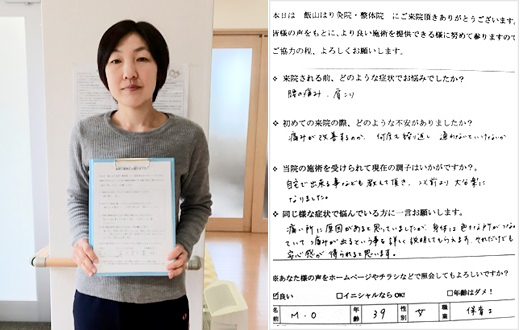 本日は 飯山はり灸院・整体院 にご来院頂きありがとうございます。
皆様の声をもとに、より良い施術を提供できる様に努めて参りますので
ご協力の程、よろしくお願いします。
❖ 来院される前、どのような症状でお悩みでしたか？
腰の痛み、肩こり
❖ 初めての来院の際、どのような不安がありましたか？
痛みが改善するのか、何度も繰り返し通わないといけないか
❖ 当院の施術を受けられて現在の調子はいかがですか。
自宅で出来る事なども教えて頂き、以前より大分楽に
なりました。
❖ 同じ様な症状で悩んでいる方に一言お願いします。
痛い所に原因があると思っていましたが、身体は色々な所がつな
がっていて痛みが出るという事も詳しく説明してもらえます。それだけでも
安心感が得られると思います。
※あなた様の声をホームページやチラシなどで照会してもよろしいですか？
☑良い □イニシャルなら OK! □年齢はダメ！
名前 M.O 年齢 39 性別 女 職業 保育士